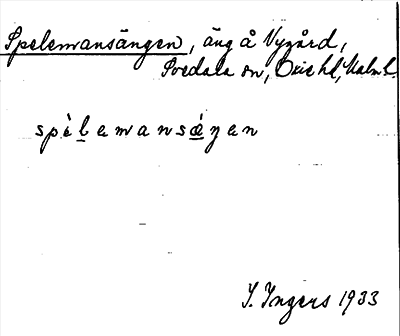 Spelemansängen, äng å Nygård,
Svedala sn, Oxie hd, Malm l.
spèlemansǽŋen
I. Ingers 1933